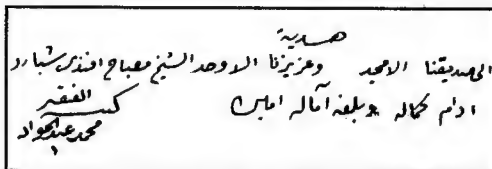 هدية
الى صديقنا الامجد وعزيزنا الاوحد الشيخ مصباح افندي شبارو
ادام كماله وبلغه آماله امين
الفقير
كتبه
محمد عبد الجواد